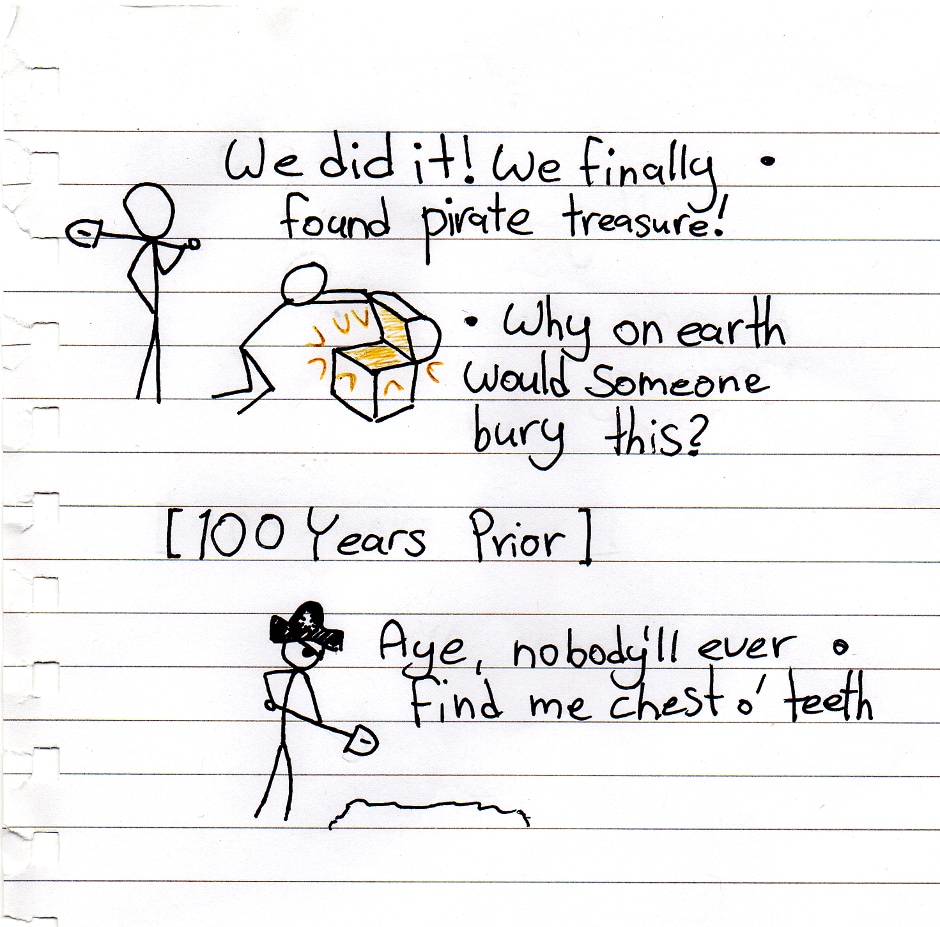 We did it! We finally
found pirate treasure!
Why on earth
would someone
bury this?
[100 Years Prior]
Aye, nobody'll ever
find me chest o' teeth